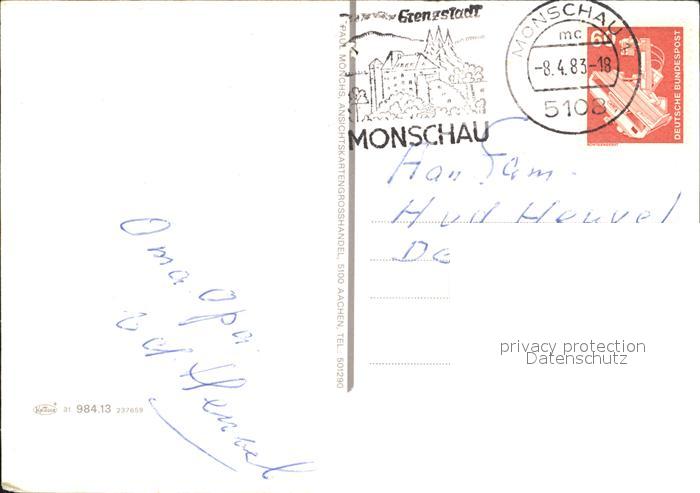 Grenzstadt
MONSCHAU
MONSCHAU
mc
-8.4.83-18
5108
60
DEUTSCHE BUNDESPOST
PAUL MÖNCHS, ANSICHTSKARTENGROSSHANDEL, 5100 AACHEN, TEL.: 501290
Aan Fam.
H vd Heuvel
De
Oma Opa
vd Heuvel
privacy protection
Datenschutz
Krüger 31 984.13 237659